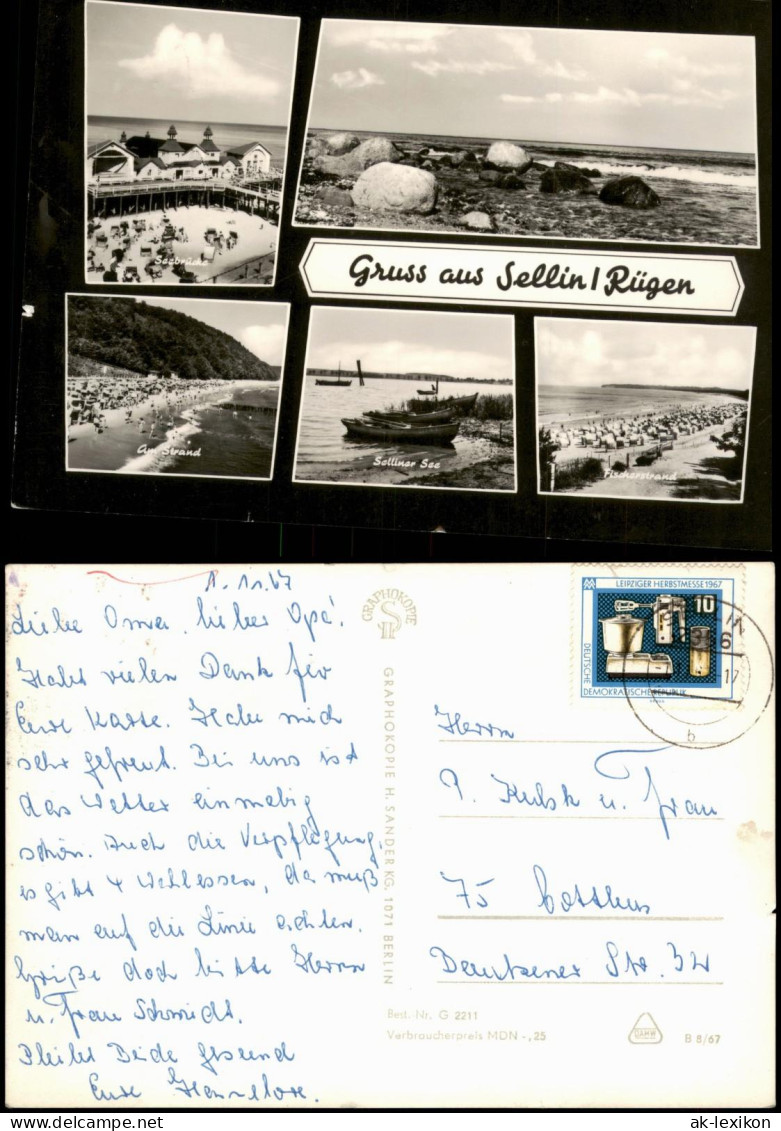 Seebrücke
Gruss aus Sellin/Rügen
Am Strand
Selliner See
Fischerstrand
1.11.67
Liebe Oma, lieber Opa!
Habt vielen Dank für
Eure Karte. Habe mich
sehr gefreut. Bei uns ist
das Wetter einmalig
schön. Auch die Verpflegung,
es gibt 4 Wahlessen, da muß
man auf die Linie achten.
Grüße doch bitte Herrn
u. Frau Schmidt.
Bleibt Beide gesund
Eure Hannelore.
GRAPHOKOPIE
GRAPHOKOPIE H. SANDER KG. 1071 BERLIN
LEIPZIGER HERBSTMESSE 1967
10
DEUTSCHE
DEMOKRATISCHE REPUBLIK
b
Herrn
P. Kubsk u. Frau
75 Cottbus
Bautzener Str. 32
Best. Nr. G 2211
Verbraucherpreis MDN -,25
B 8/67
ak-lexikon